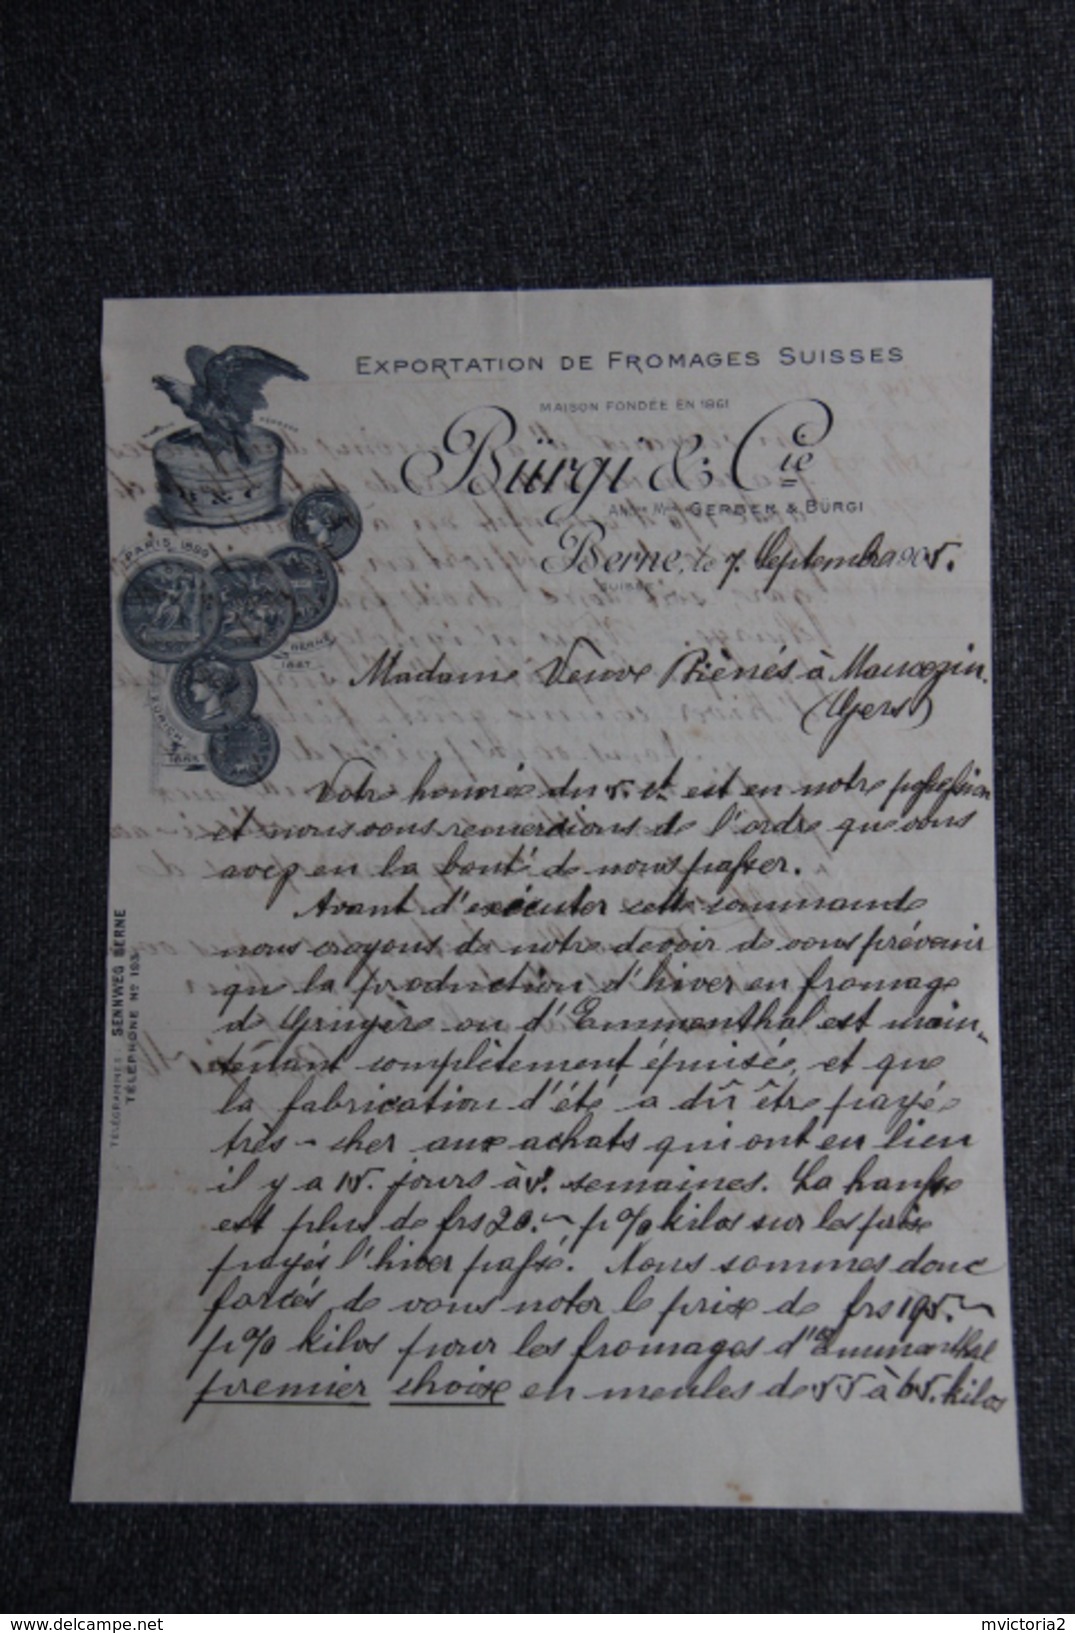 EXPORTATION DE FROMAGES SUISSES
MAISON FONDÉE EN 1861
Bürgi & Cie
GERBER & BÜRGI
Berne, le 7. Septembre 1905.
SUISSE
PARIS 1889
BERNE
1857
ZURICH
1883
PARIS
Madame Veuve à Mauvezin.
(Gers)
Votre honorée du 5. ct. est en notre possession
et nous vous remercions de l'ordre que vous
avez eu la bonté de nous passer.
Avant d'exécuter cette commande
nous croyons de notre devoir de vous prévenir
que la production d'hiver en fromage
de Gruyère ou d'Emmenthal est main-
tenant complètement épuisée, et que
la fabrication d'été a dû être payée
très-cher aux achats qui ont eu lieu
il y a 15. jours à 3. semaines. La hausse
est plus de frs 20.- p% kilos sur les prix
payés l'hiver passé. Nous sommes donc
forcés de vous noter le prix de frs 195.-
p% kilos pour les fromages d'Emmenthal
premier choix en meules de 55 à 65. kilos
TÉLÉGRAMMES: SENNWEG BERNE
TÉLÉPHONE No 193
delcampe.net
mvictoria2